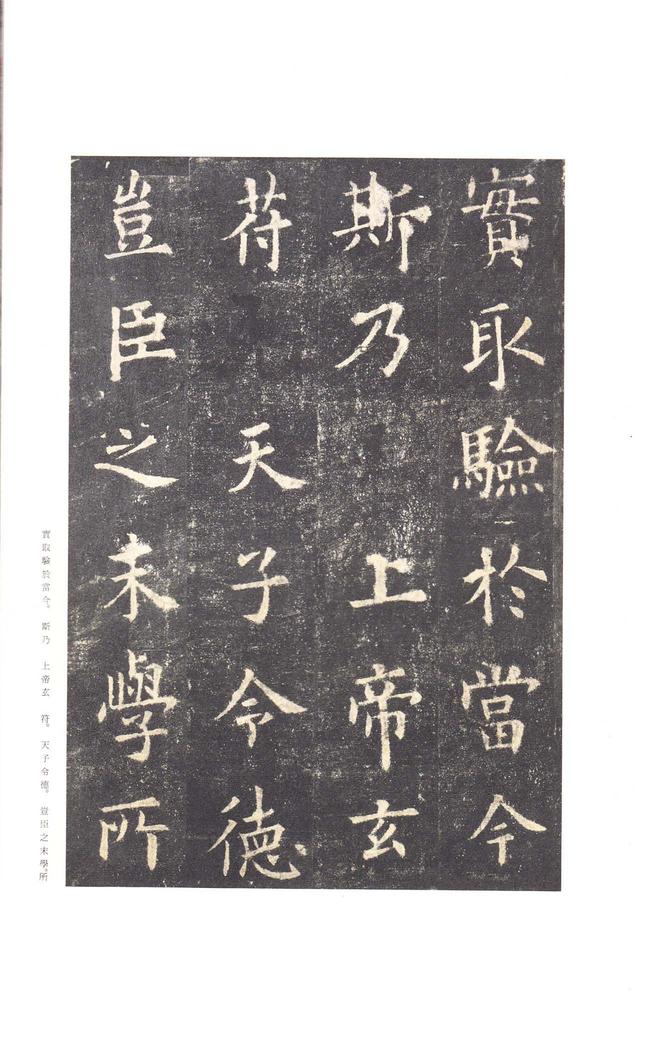 實取驗於當今
斯乃 上帝玄
苻 天子令德
豈臣之末學所
實取驗於當今。 斯乃 上帝玄 符。 天子令德。 豈臣之末學。所